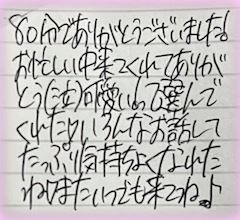 80分でありがとうございました!
お忙しい中来てくれてありが
とう(泣)可愛いって選んで
くれたり、いろんなお話して
たっぷり気持ちよくなれた
ねまたいつでも来てね♪